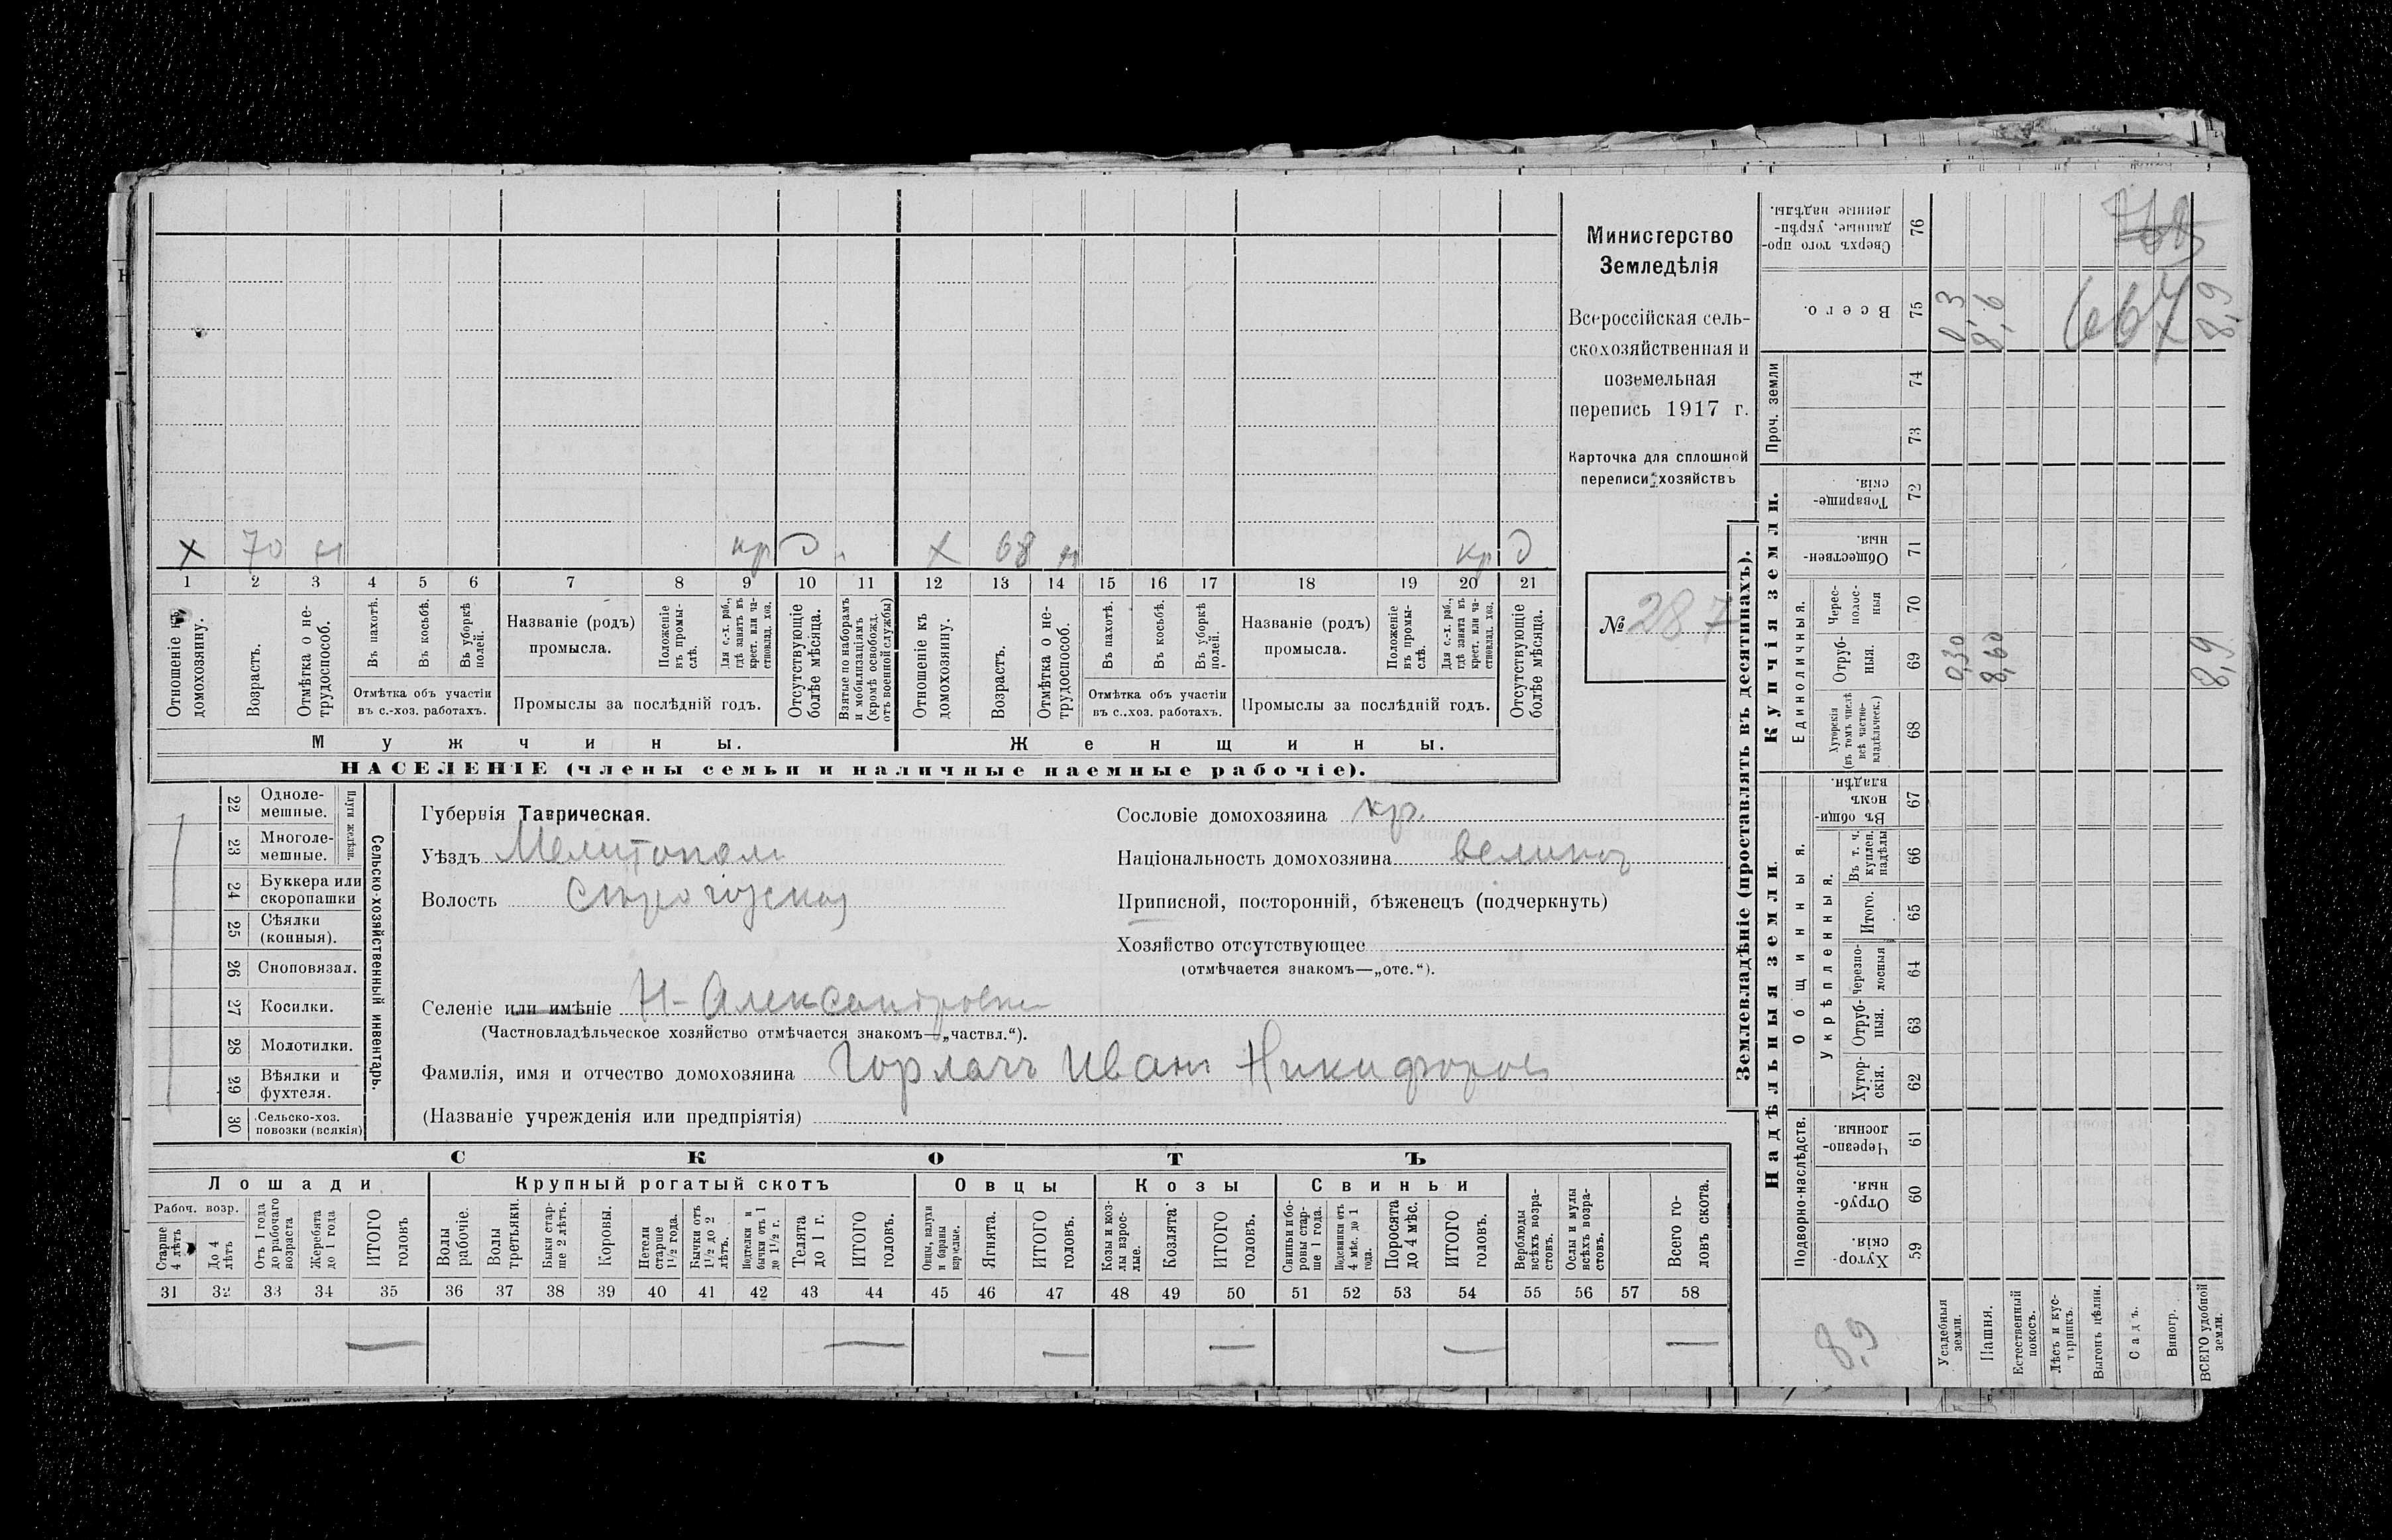 х 70 н кр О х 68 н кр О
1 2 3 4 5 6 7 8 9 10 11 12 13 14 15 16 17 18 19 20 21
Отношеніе къ домохозяину.
Возрастъ.
Отмѣтка о не-
трудоспособ.
Въ пахотѣ.
Въ косьбѣ.
Въ уборкѣ
полей.
Отмѣтка объ участіи
въ с.-хоз. работахъ.
Названіе (родъ)
промысла.
Положеніе
въ промы-
слѣ.
Для с.-х. раб.,
гдѣ занятъ въ
крест. или ча-
стновлад. хоз.
Промыслы за послѣдній годъ.
Отсутствующіе
болѣе мѣсяца.
Взятые по наборамъ
и мобилизаціямъ
(кромѣ освобожд.
отъ военной службы)
Отношеніе къ
домохозяину.
Возрастъ.
Отмѣтка о не-
трудоспособ.
Въ пахотѣ.
Въ косьбѣ.
Въ уборкѣ
полей.
Отмѣтка объ участіи
въ с.-хоз. работахъ.
Названіе (родъ)
промысла.
Положеніе
въ промы-
слѣ.
Для с.-х. раб.,
гдѣ занята въ
крест. или ча-
стновлад. хоз.
Промыслы за послѣдній годъ.
Отсутствующіе
болѣе мѣсяца.
Мужчины. Женщины.
НАСЕЛЕНІЕ (члены семьи и наличные наемные рабочіе).
Министерство
Земледѣлія
Всероссійская сель-
скохозяйственная и
поземельная
перепись 1917 г.
Карточка для сплошной
переписи хозяйствъ
№ 287
22 Одноле-
мешные.
23 Многоле-
мешные.
Плуги желѣзн.
24 Буккера или
скоропашки
25 Сѣялки
(конныя).
26 Сноповязал.
27 Косилки.
28 Молотилки.
29 Вѣялки и
фухтеля.
30 Сельско-хоз.
повозки (всякія)
Сельско-хозяйственный инвентарь.
Губернія Таврическая.
Уѣздъ Мелитопол
Волость Сѣрогозская
Селеніе или имѣніе Н-Александровка
(Частновладѣльческое хозяйство отмѣчается знакомъ—„частвл.“).
Фамилія, имя и отчество домохозяина Горлачъ Иванъ Никифоров
(Названіе учрежденія или предпріятія)
Сословіе домохозяина кр.
Національность домохозяина велик
Приписной, посторонній, бѣженецъ (подчеркнуть)
Хозяйство отсутствующее
(отмѣчается знакомъ—„отс.“).
СКОТЪ
Лошади Крупный рогатый скотъ Овцы Козы Свиньи
Рабоч. возр.
Старше
4 лѣтъ
До 4
лѣтъ
Отъ 1 года
до рабочаго
возраста
Жеребята
до 1 года
ИТОГО
головъ
Волы
рабочіе.
Волы
третьяки.
Быки стар-
ше 2 лѣтъ.
Коровы.
Нетели
старше
1½ года.
Бычки отъ
1½ до 2
лѣтъ.
Подтелки и
бычки отъ 1
до 1½ г.
Телята
до 1 г.
ИТОГО
головъ.
Овцы, валухи
и бараны
взрослые.
Ягнята.
ИТОГО
головъ.
Козы и коз-
лы взрос-
лые.
Козлята.
ИТОГО
головъ.
Свиньи и бо-
ровы стар-
ше 1 года.
Подсвинки отъ
4 мѣс. до 1
года.
Поросята
до 4 мѣс.
ИТОГО
головъ.
Верблюды
всѣхъ возра-
стовъ.
Ослы и мулы
всѣхъ возра-
стовъ.
Всего го-
ловъ скота.
31 32 33 34 35 36 37 38 39 40 41 42 43 44 45 46 47 48 49 50 51 52 53 54 55 56 57 58
— — — — — —
Землевладѣніе (проставлять въ десятинахъ).
Купчія земли.
Надѣльныя земли.
Сверхъ того про-
данные, укрѣп-
ленные надѣлы.
76
Всего.
75 0,3 8,6 667 8,9
Проч. земли
74
73
Товарище-
скія.
72
Обществен-
ныя.
71
Единоличныя.
Черес-
полос-
ныя
70
Отруб-
ныя.
69 0,30 8,60 8,9
Хуторскія
(въ томъ числѣ
всѣ частно-
владѣльческ.)
68
Общинныя.
Въ общи-
номъ
владѣн.
67
Укрѣпленныя.
Въ т. ч.
куплен.
надѣлы
66
Итого.
65
Черезпо-
лосныя
64
Отруб-
ныя.
63
Хутор-
скія.
62
Подворно-наслѣдств.
Черезпо-
лосныя.
61
Отруб-
ныя.
60
Хутор-
скія.
59
8,9
Усадебныя
земли.
Пашня.
Естественный
покосъ.
Лѣсъ и кус-
тарникъ.
Выгонъ цѣлин.
Садъ.
Виногр.
ВСЕГО удобной
земли.